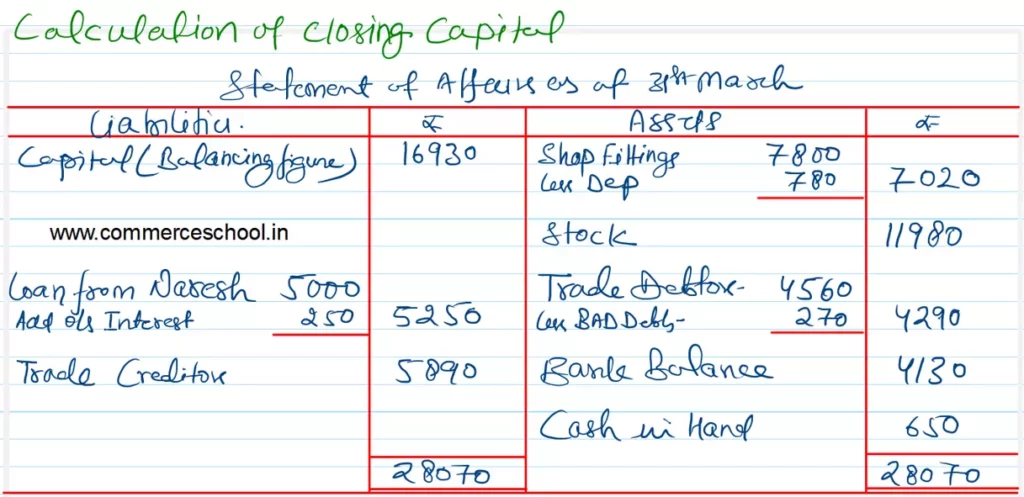 Calculation of Closing Capital
Statement of Affairs as of 31st March
Liabilities. ₹ Assets ₹
Capital (Balancing figure) 16930 Shop Fittings 7800
Less Dep 780 7020
www.commerceschool.in Stock 11980
Loan from Naresh 5000 Trade Debtors- 4560
Add O/s Interest 250 5250 Less BAD Debts- 270 4290
Trade Creditors 5890 Bank Balance 4130
Cash in Hand 650
28070 28070